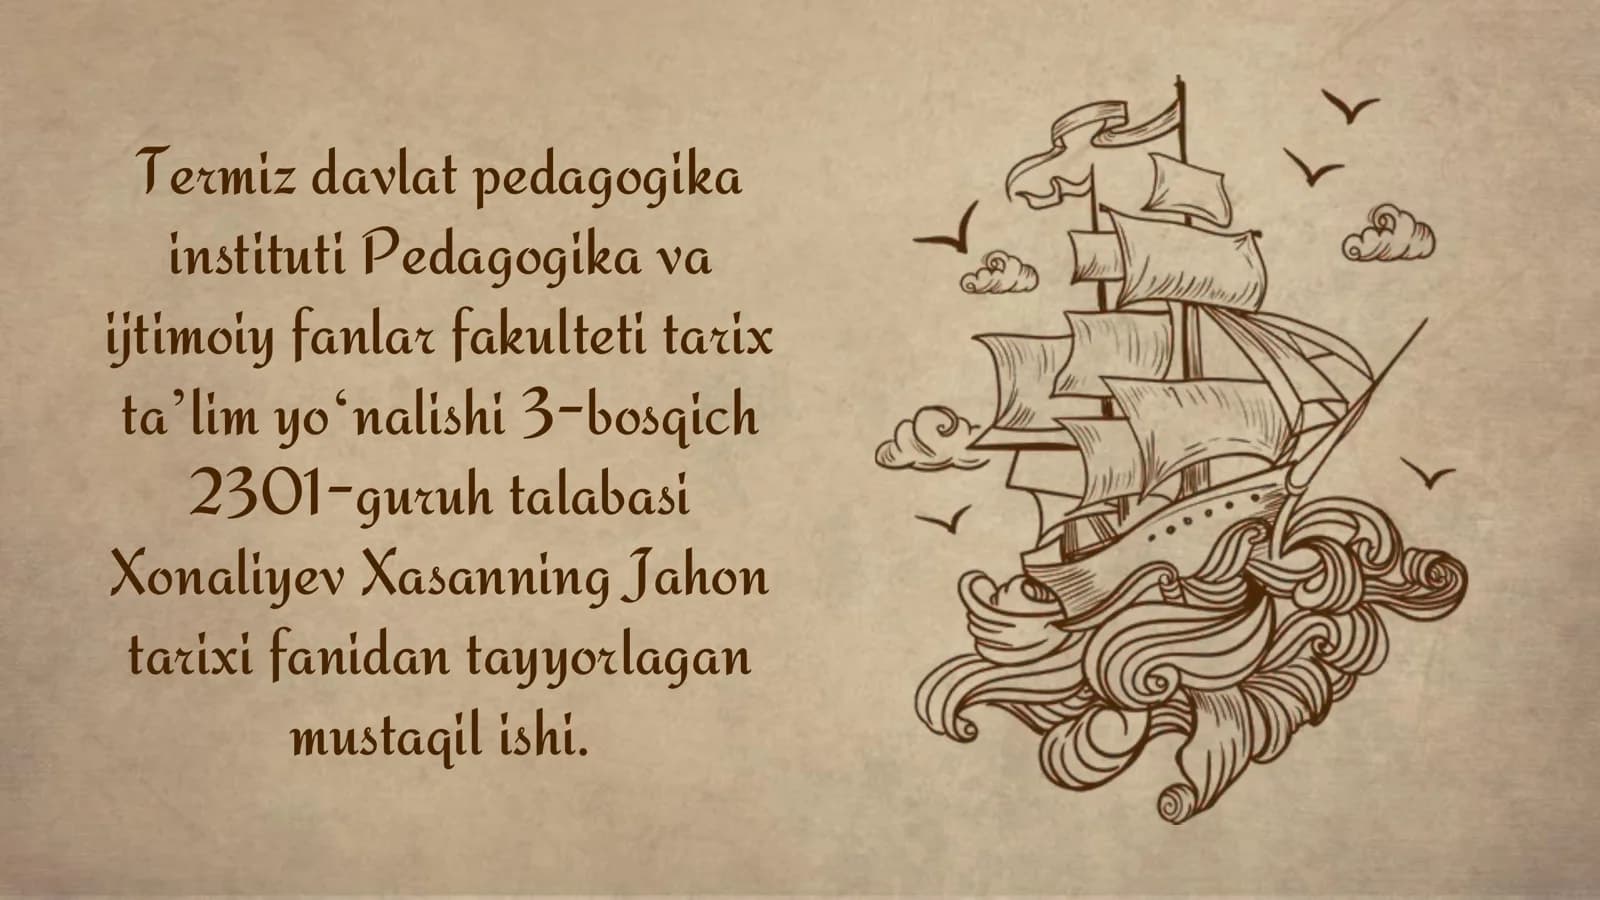 Termiz davlat pedagogika
instituti Pedagogika va
ijtimoiy fanlar fakulteti tarix
ta’lim yo‘nalishi 3-bosqich
2301-guruh talabasi
Xonaliyev Xasanning Jahon
tarixi fanidan tayyorlagan
mustaqil ishi.